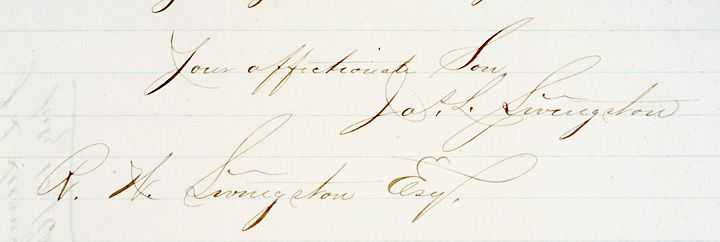 Your affectionate Son
Jos. L. Livingston
R. H. Livingston Esq.